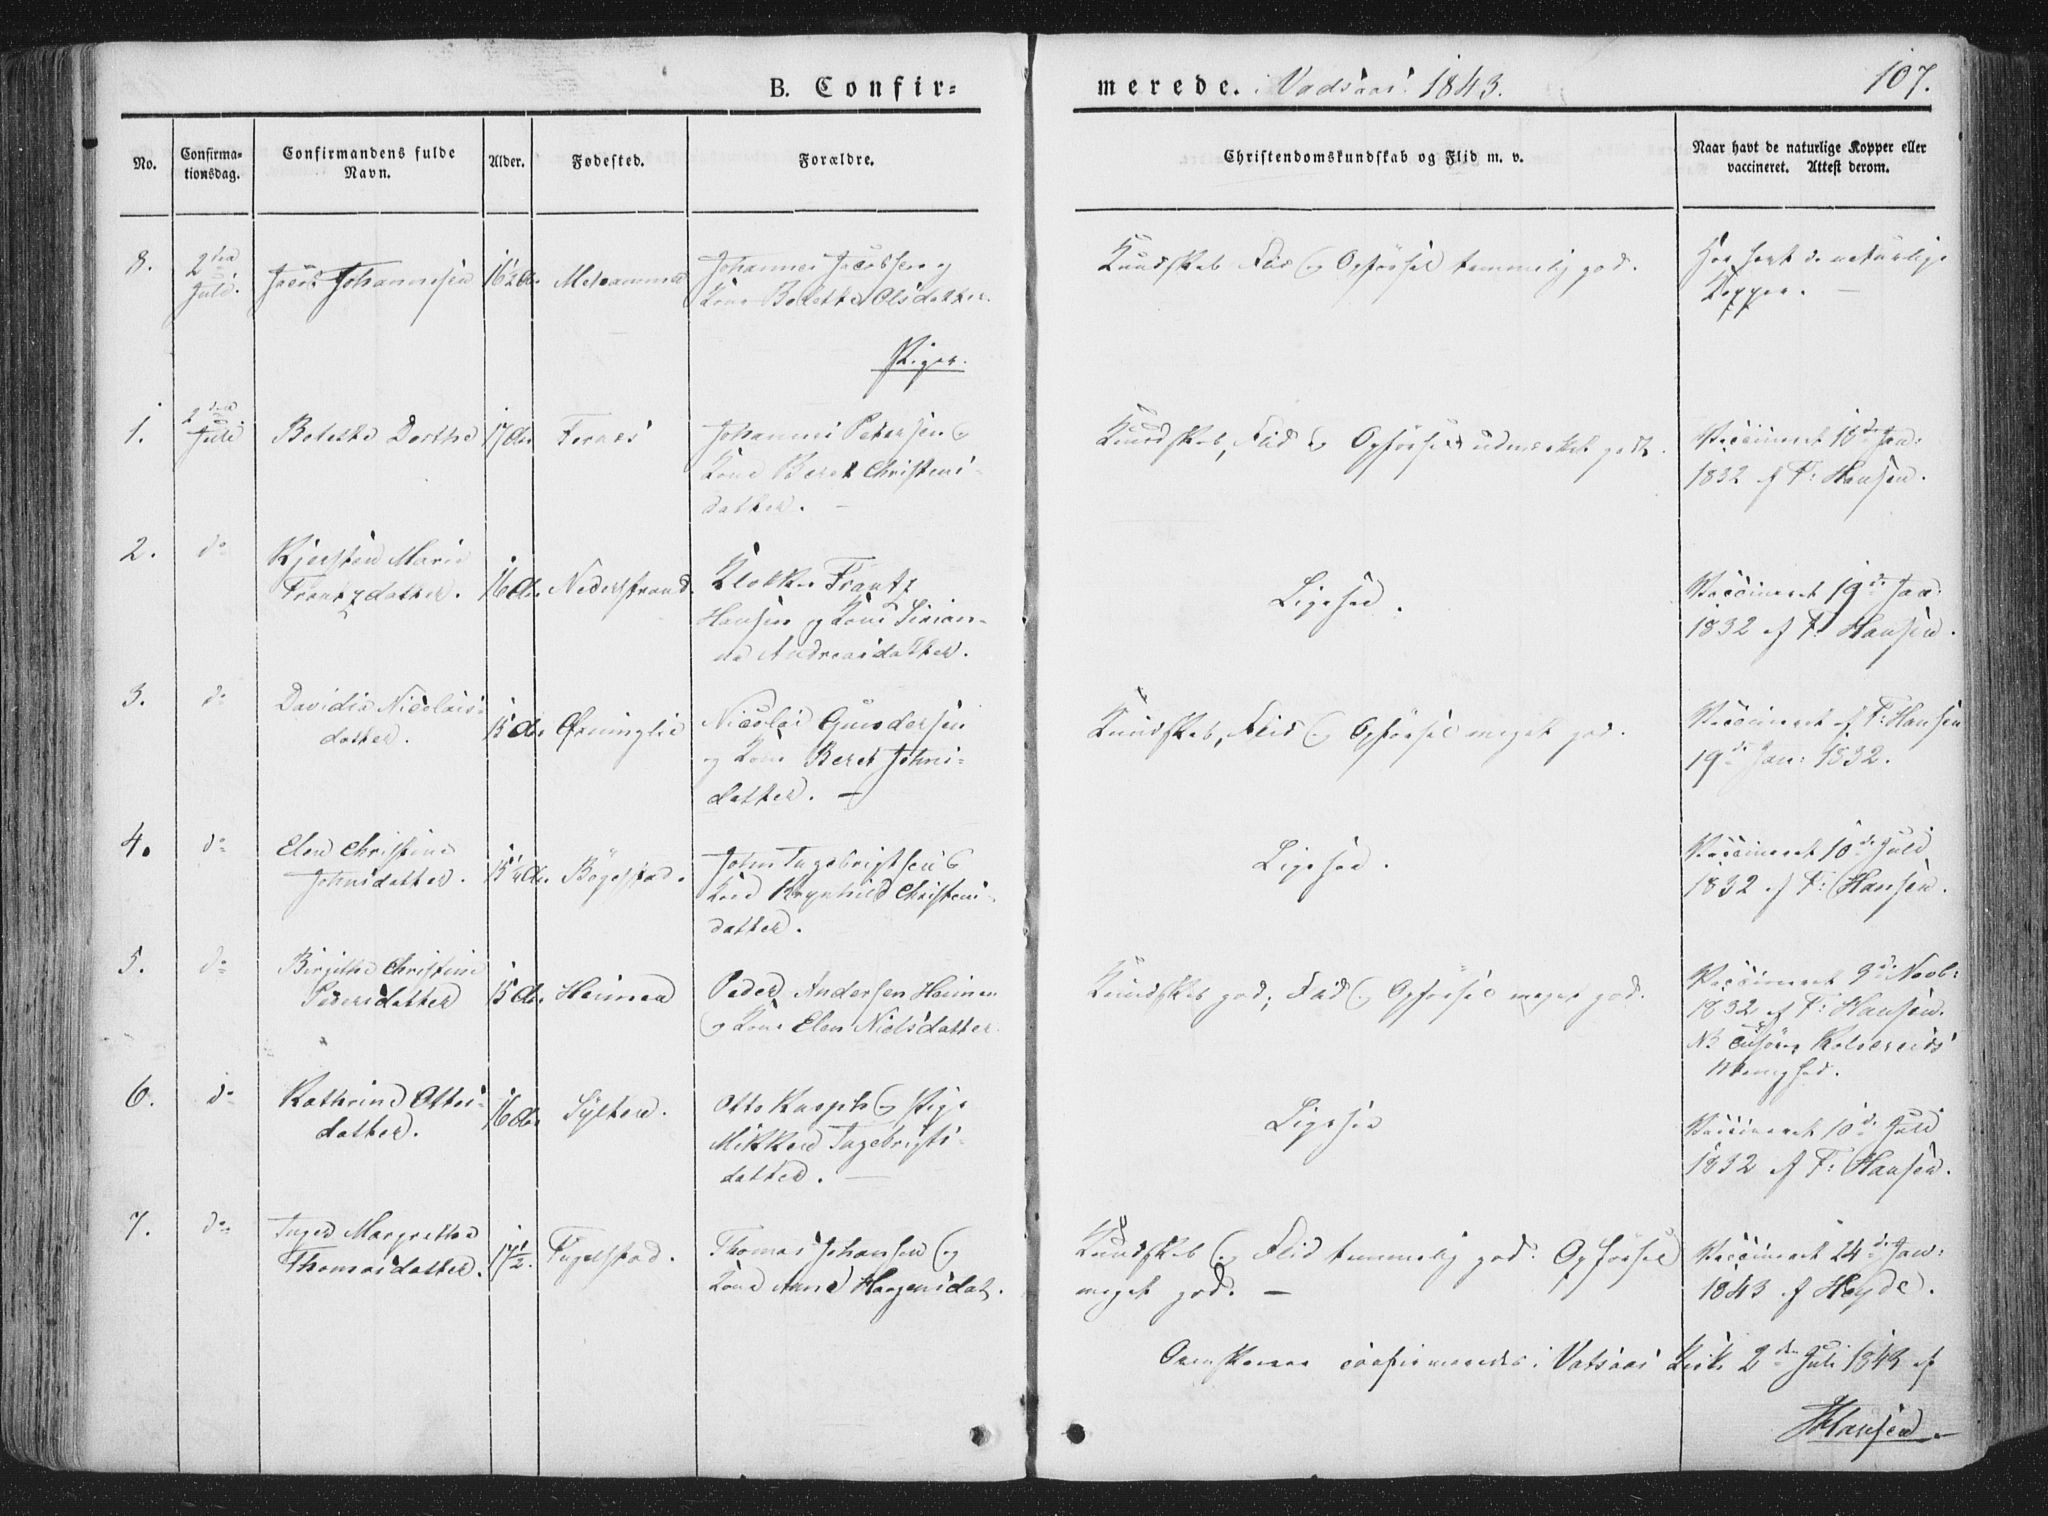 B. Confir=
merede. i Vadsaas 1843.
107.
No.
Confirma=
tionsdag.
Confirmandens fulde
Navn.
Alder.
Fødested.
Forældre.
Christendomskundskab og Flid m. v.
Naar havt de naturlige Kopper eller
vaccineret. Attest derom.
8.
2den
Juli.
Jacob Johannesen
16½ Aar
Johannes Jacobsen og
Kone Beletha Olsdatter.
Kundskab, Flid og Opførsel temmelig god.
Har havt de naturlige
Kopper. —
Piger.
1.
2den
Juli
Beletha Dorthe
17 Aar
Ternes
Johannes Petersen og
Kone Beret Christens-
datter. —
Kundskab, Flid og Opførsel udmærket godt.
Vaccineret 16de Jan:
1832 af F: Hansen.
2.
do
Kjersten Marie
Frantzdatter.
16 Aar
Nederstrand.
Klokker Frantz
Hansen og Kone Sirian-
na Andreasdatter.
Ligesaa.
Vaccineret 19de Jan:
1832 af F. Hansen.
3.
do
Davidia Nicolais-
datter.
15 Aar
Nicolai Gundersen
og Kone Beret Johns-
datter. —
Kundskab, Flid og Opførsel meget god.
Vaccineret af F: Hansen
19de Jan: 1832.
4.
do
Elen Christine
Johnsdatter.
15¼ Aar
Bøgestad.
John Ingebrigtsen og
Kone Ragnhild Christens-
datter.
Ligesaa.
Vaccineret 10de Juli
1832 af F: Hansen.
5.
do
Birgitha Christine
Pedersdatter
15 Aar
Heimen
Peder Andersen Heimen
og Kone Elen Nielsdatter.
Kundskab god; Flid og Opførsel meget god.
Vaccineret 9de Novb:
1832 af F: Hansen.
NB Kolvereids
Menighed.
6.
do
Kathrine Ottes-
datter.
16 Aar
Sylten.
Otto Kasph og Pige
Mikken Ingebrigts-
datter. —
Ligesaa
Vaccineret 10de Juli
1832 af F: Hansen.
7.
do
Inger Margrethe
Thomasdatter.
17½.
Fugelstad.
Thomas Johansen og
Kone Anne Haagensdat.
Kundskab og Flid temmelig god. Opførsel
meget god. —
Vaccineret 24de Jan:
1843 af Heyde.
Ovenstaaende confirmerede i Vatsaas Kirke 2den Juli 1843 af
FHansen.